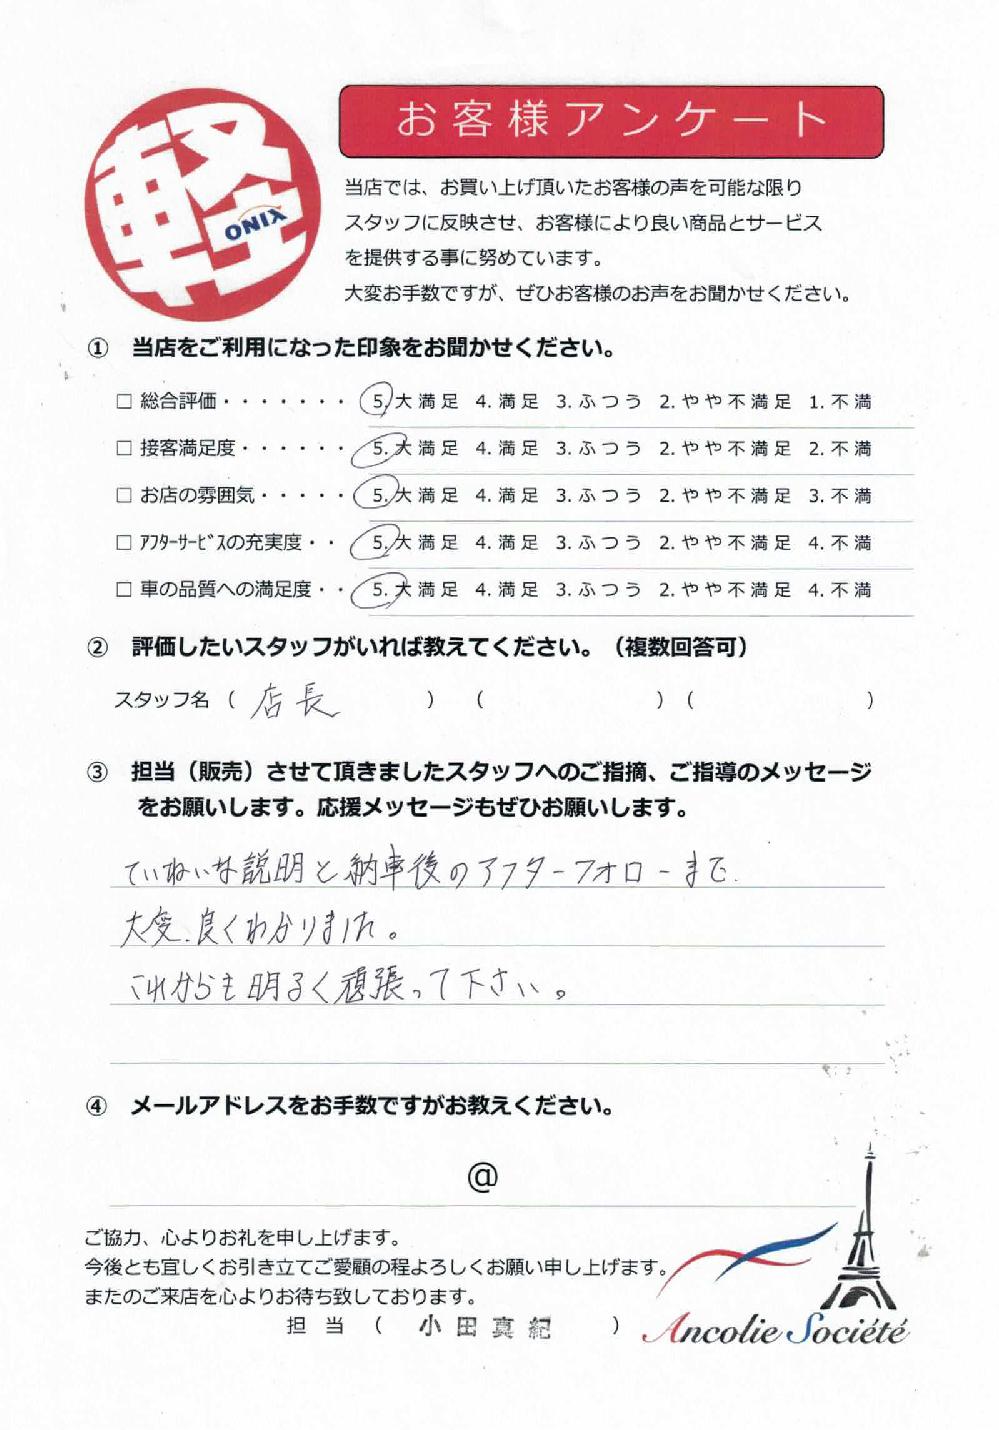 軽
ONIX
お客様アンケート
当店では、お買い上げ頂いたお客様の声を可能な限り
スタッフに反映させ、お客様により良い商品とサービス
を提供する事に努めています。
大変お手数ですが、ぜひお客様のお声をお聞かせください。
① 当店をご利用になった印象をお聞かせください。
□ 総合評価・・・・・・・ 5.大満足 4.満足 3.ふつう 2.やや不満足 1.不満
□ 接客満足度・・・・・・ 5.大満足 4.満足 3.ふつう 2.やや不満足 2.不満
□ お店の雰囲気・・・・・ 5.大満足 4.満足 3.ふつう 2.やや不満足 3.不満
□ ｱﾌﾀｰｻｰﾋﾞｽの充実度・・ 5.大満足 4.満足 3.ふつう 2.やや不満足 4.不満
□ 車の品質への満足度・・ 5.大満足 4.満足 3.ふつう 2.やや不満足 4.不満
② 評価したいスタッフがいれば教えてください。（複数回答可）
スタッフ名（ 店長 ）（ ）（ ）
③ 担当（販売）させて頂きましたスタッフへのご指摘、ご指導のメッセージ
をお願いします。応援メッセージもぜひお願いします。
ていねいな説明と納車後のアフターフォローまで
大変良くわかりました。
これからも明るく頑張って下さい。
④ メールアドレスをお手数ですがお教えください。
@
ご協力、心よりお礼を申し上げます。
今後とも宜しくお引き立てご愛顧の程よろしくお願い申し上げます。
またのご来店を心よりお待ち致しております。
担 当 （ 小田真紀 ）
Ancolie Société